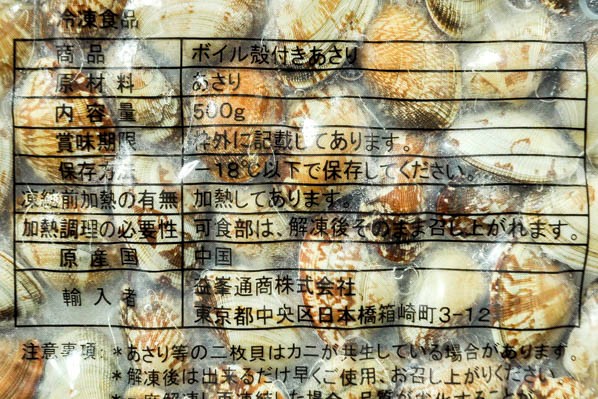 冷凍食品
商品 ボイル殻付きあさり
原材料 あさり
内容量 500g
賞味期限 枠外に記載してあります。
保存方法 －18℃以下で保存してください。
凍結前加熱の有無 加熱してあります。
加熱調理の必要性 可食部は、解凍後そのまま召し上がれます。
原産国 中国
輸入者 益峯通商株式会社
東京都中央区日本橋箱崎町3-12
注意事項:*あさり等の二枚貝はカニが共生している場合があります。
*解凍後は出来るだけ早くご使用、お召し上がりください